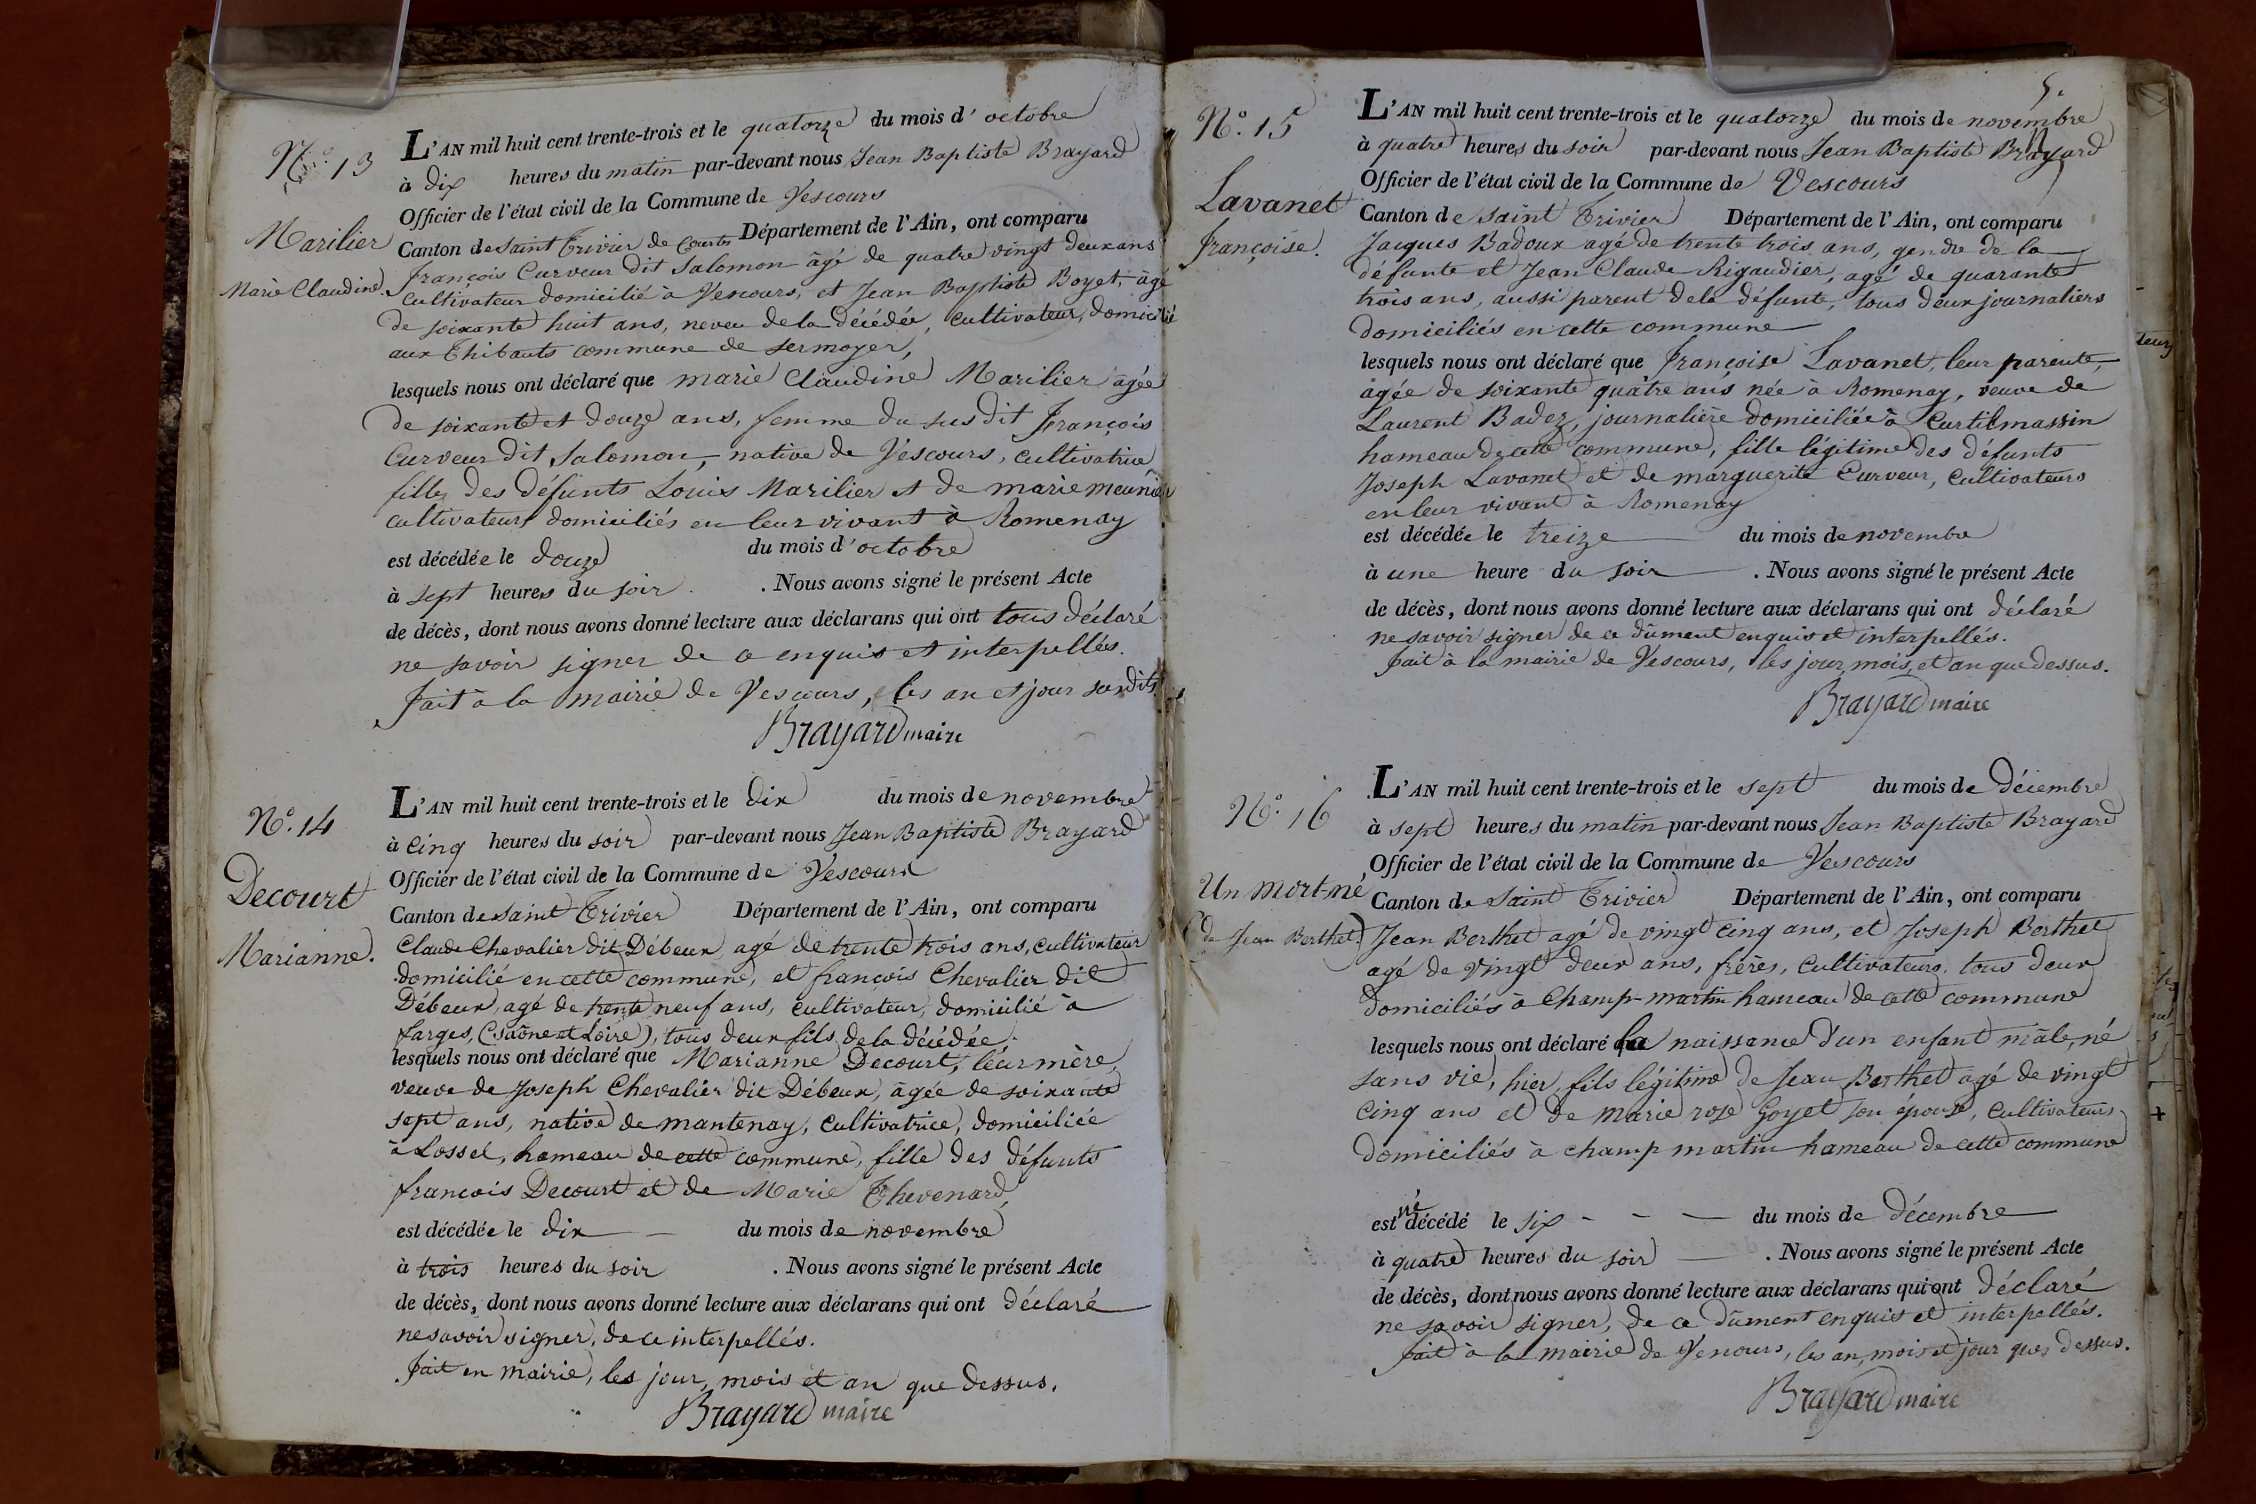 N.° 13
Marilier
Marie Claudine.
L'AN mil huit cent trente-trois et le quatorze du mois d'octobre
à dix heures du matin par-devant nous Jean Baptiste Brayard
Officier de l'état civil de la Commune de Vescours
Canton de Saint Trivier de Courtes Département de l'Ain, ont comparu
françois Curveur dit Salomon âgé de quatre vingt deux ans
cultivateur domicilié à Vescours, et Jean Baptiste Boyet, âgé
de soixante huit ans, neveu de la décédée, cultivateur, domicilié
aux Thibauts commune de Sermoyer,
lesquels nous ont déclaré que marie Claudine Marilier agée
de soixante et douze ans, femme du susdit françois
Curveur dit Salomon, native de Vescours, cultivatrice
fille des défunts Louis Marilier et de marie meunier
cultivateurs domiciliés en leur vivant à Romenay
est décédée le douze du mois d'octobre
à sept heures du soir . Nous avons signé le présent Acte
de décès, dont nous avons donné lecture aux déclarans qui ont tous déclaré
ne savoir signer de ce enquis et interpellés.
fait à la mairie de Vescours, les an et jour susdits.
Brayard maire
N.° 14
Decourt
Marianne.
L'AN mil huit cent trente-trois et le dix du mois de novembre
à cinq heures du soir par-devant nous Jean Baptiste Brayard
Officier de l'état civil de la Commune de Vescours
Canton de Saint Trivier Département de l'Ain, ont comparu
Claude Chevalier dit Débeux, agé de trente trois ans, cultivateur
domicilié en cette commune, et françois Chevalier dit
Débeux, agé de trente neuf ans, cultivateur, domicilié à
farges, (Saône et Loire), tous deux fils de la décédée.
lesquels nous ont déclaré que Marianne Decourt, leur mère,
veuve de Joseph Chevalier dit Débeux, âgée de soixante
sept ans, native de mantenay, cultivatrice, domiciliée
à Lossel, hameau de cette commune, fille des défunts
francois Decourt et de Marie Thevenard,
est décédée le dix du mois de novembre
à trois heures du soir . Nous avons signé le présent Acte
de décès, dont nous avons donné lecture aux déclarans qui ont déclaré
ne savoir signer, de ce interpellés.
fait en mairie, les jour, mois et an que dessus.
Brayard maire
5.
N.° 15
Lavanet
françoise.
L'AN mil huit cent trente-trois et le quatorze du mois de novembre
à quatre heures du soir par-devant nous Jean Baptiste Brayard
Officier de l'état civil de la Commune de Vescours
Canton de Saint Trivier Département de l'Ain, ont comparu
Jacques Badoux agé de trente trois ans, gendre de la
défunte et Jean Claude Rigaudier, agé de quarante
trois ans, aussi parent de la défunte, tous deux journaliers
domiciliés en cette commune
lesquels nous ont déclaré que françoise Lavanet, leur parente,
agée de soixante quatre ans née à Romenay, veuve de
Laurent Badez, journalière domiciliée à Curtilmassin
hameau de cette commune, fille légitime des défunts
Joseph Lavanet et de marguerite Curveur, cultivateurs
en leur vivant à Romenay
est décédée le treize du mois de novembre
à une heure du soir . Nous avons signé le présent Acte
de décès, dont nous avons donné lecture aux déclarans qui ont déclaré
ne savoir signer de ce dûment enquis et interpellés.
fait à la mairie de Vescours, les jour, mois, et an que dessus.
Brayard maire
N.° 16
Un mort-né
(de Jean Berthet.)
L'AN mil huit cent trente-trois et le sept du mois de Décembre
à sept heures du matin par-devant nous Jean Baptiste Brayard
Officier de l'état civil de la Commune de Vescours
Canton de Saint Trivier Département de l'Ain, ont comparu
Jean Berthet agé de vingt cinq ans, et Joseph Berthet
agé de vingt deux ans, frères, cultivateurs, tous deux
domiciliés à Champ-martin hameau de cette commune
lesquels nous ont déclaré la naissance d'un enfant mâle, né
sans vie, hier, fils légitime de Jean Berthet agé de vingt
cinq ans et de marie rose Goyet son épouse, cultivateurs
domiciliés à champ martin hameau de cette commune
né
est décédé le six - - du mois de décembre
à quatre heures du soir . Nous avons signé le présent Acte
de décès, dont nous avons donné lecture aux déclarans qui ont déclaré
ne savoir signer, de ce dûment enquis et interpellés.
fait à la mairie de Vescours, les an, mois et jour que dessus.
Brayard maire